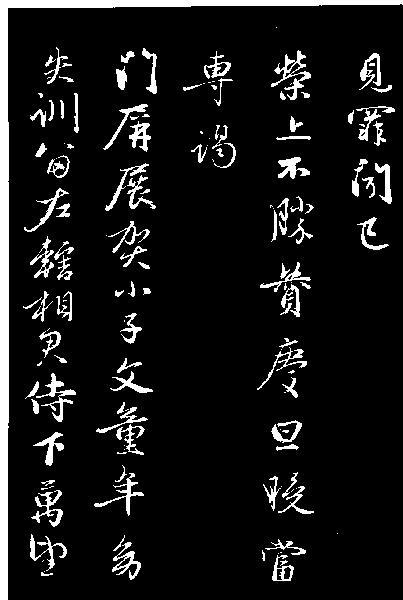 見罪聞已
榮上不勝贊慶旦晚當
專謁
門屏展賀小子文童年多
失訓當左轄相見侍下萬望